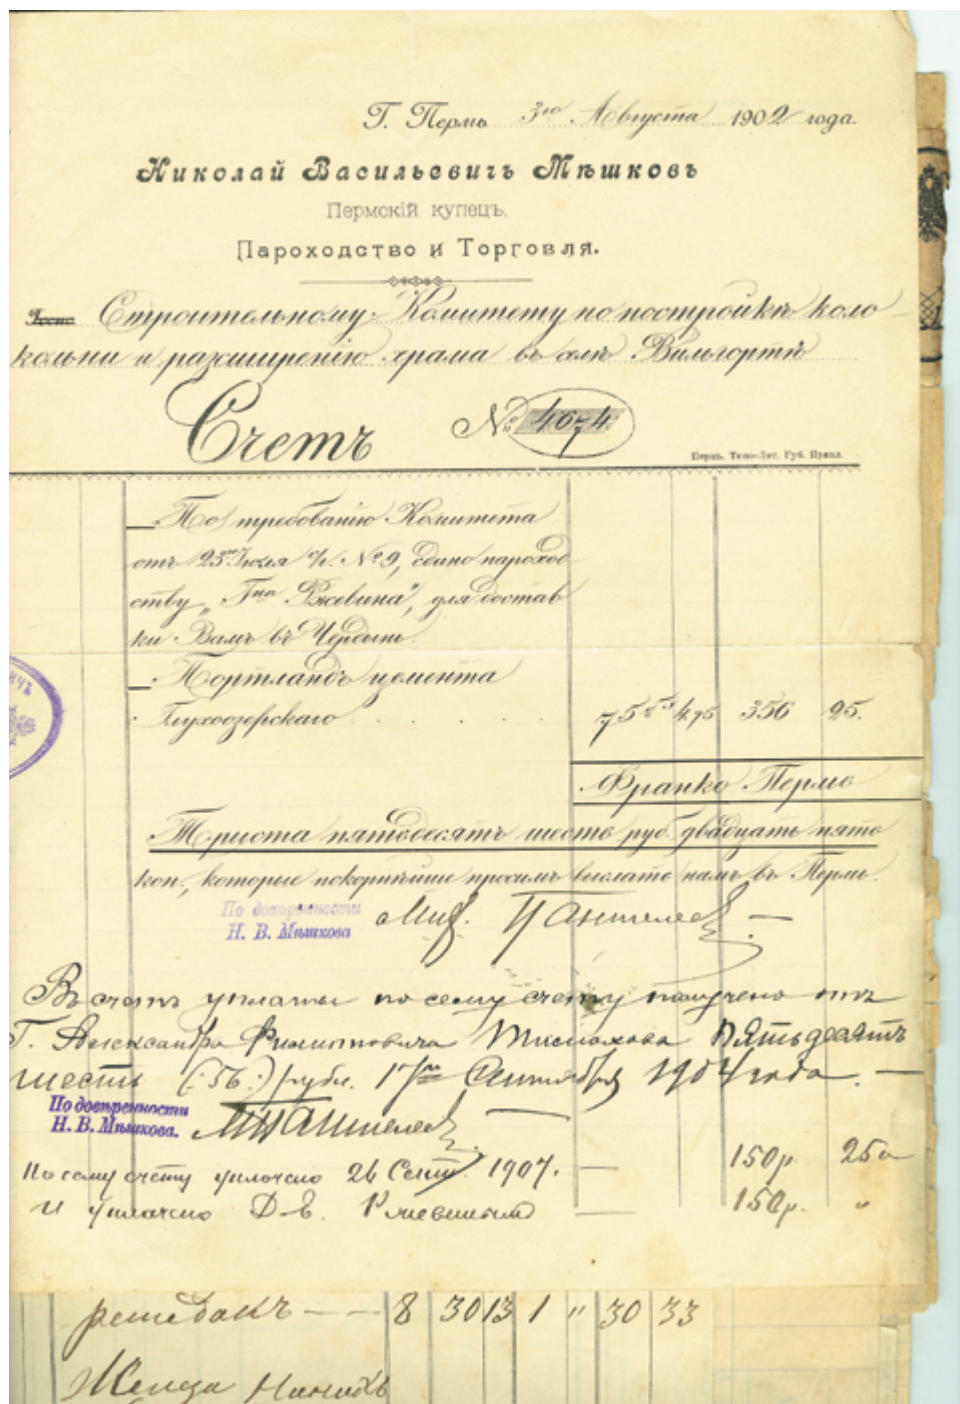 Г. Пермь 3го Августа 1902 года.
Николай Васильевичъ Мѣшковъ
Пермскій купецъ.
Пароходство и Торговля.
Строительному Комитету по постройкѣ коло
кольни и разширенію храма въ селѣ Вильгортѣ
Счетъ № 4674
Пермь. Типо-Лит. Губ. Правл.
По требованію Комитета
отъ 25го Іюля с/г. № 9, сдано пароход
ству „Гна Ржевина", для достав
ки Вамъ въ Чердынь.
Портландъ цемента
Глухоозерскаго . . . . . 75 4.75 356 25.
Франко Пермь
Триста пятьдесятъ шесть руб. двадцать пять
коп., которые покорнѣйше просимъ выслать намъ въ Пермь.
По довѣренности
Н. В. Мѣшкова
Въ счетъ уплаты по сему счету получено отъ
Г. Александра Филипповича Пятьдесятъ
шесть (:56:) рубл. 17го Сентября 1904 года. —
По довѣренности
Н. В. Мѣшкова.
По сему счету уплочено 26 Сент. 1907. — 150р. 25к
и уплочено Д. Е. — 150р. „
решедокъ — — 8 30 13 1 „ 30 33